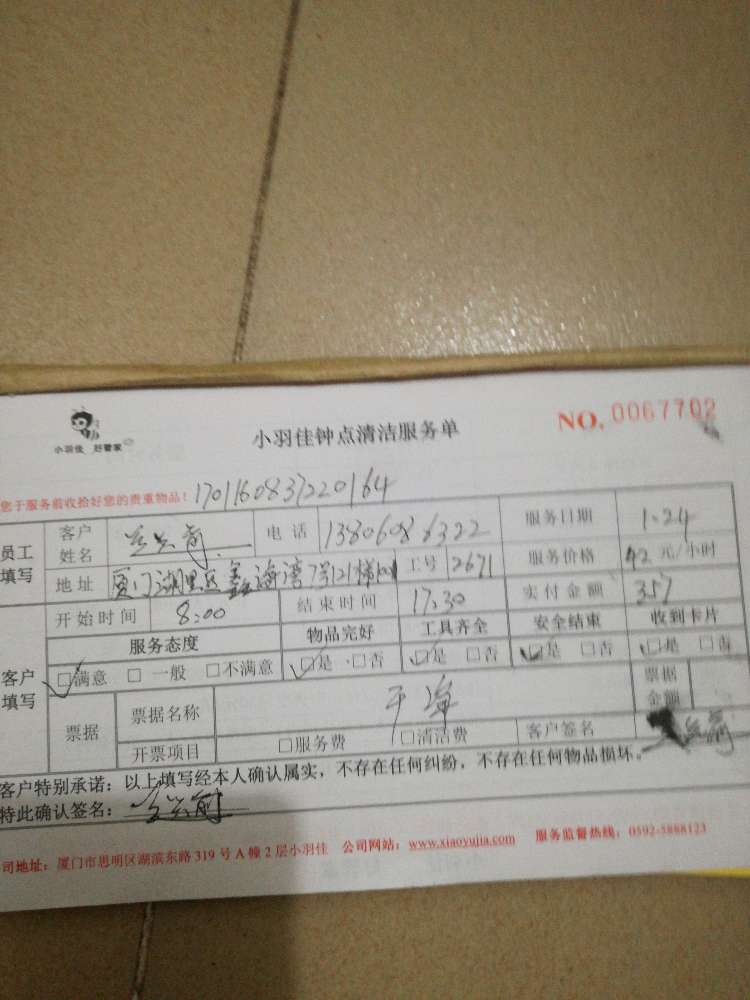 小羽佳 好管家
小羽佳钟点清洁服务单
NO. 0067702
您于服务前收拾好您的贵重物品! 1701160837220164
员工填写 客户姓名 电话 13806086322 服务日期 1.24
地址 厦门湖里区鑫海湾7号 工号 2671 服务价格 42 元/小时
开始时间 8:00 结束时间 17:30 实付金额 357
客户填写 服务态度 物品完好 工具齐全 安全结束 收到卡片
☑满意 □一般 □不满意 ☑是 □否 ☑是 □否 ☑是 □否 ☑是 □否
票据 票据名称 干净 票据金额
开票项目 □服务费 □清洁费 客户签名
客户特别承诺:以上填写经本人确认属实,不存在任何纠纷,不存在任何物品损坏。
特此确认签名:
司地址:厦门市思明区湖滨东路 319 号 A 幢 2 层小羽佳 公司网站:www.xiaoyujia.com 服务监督热线:0592-5888123